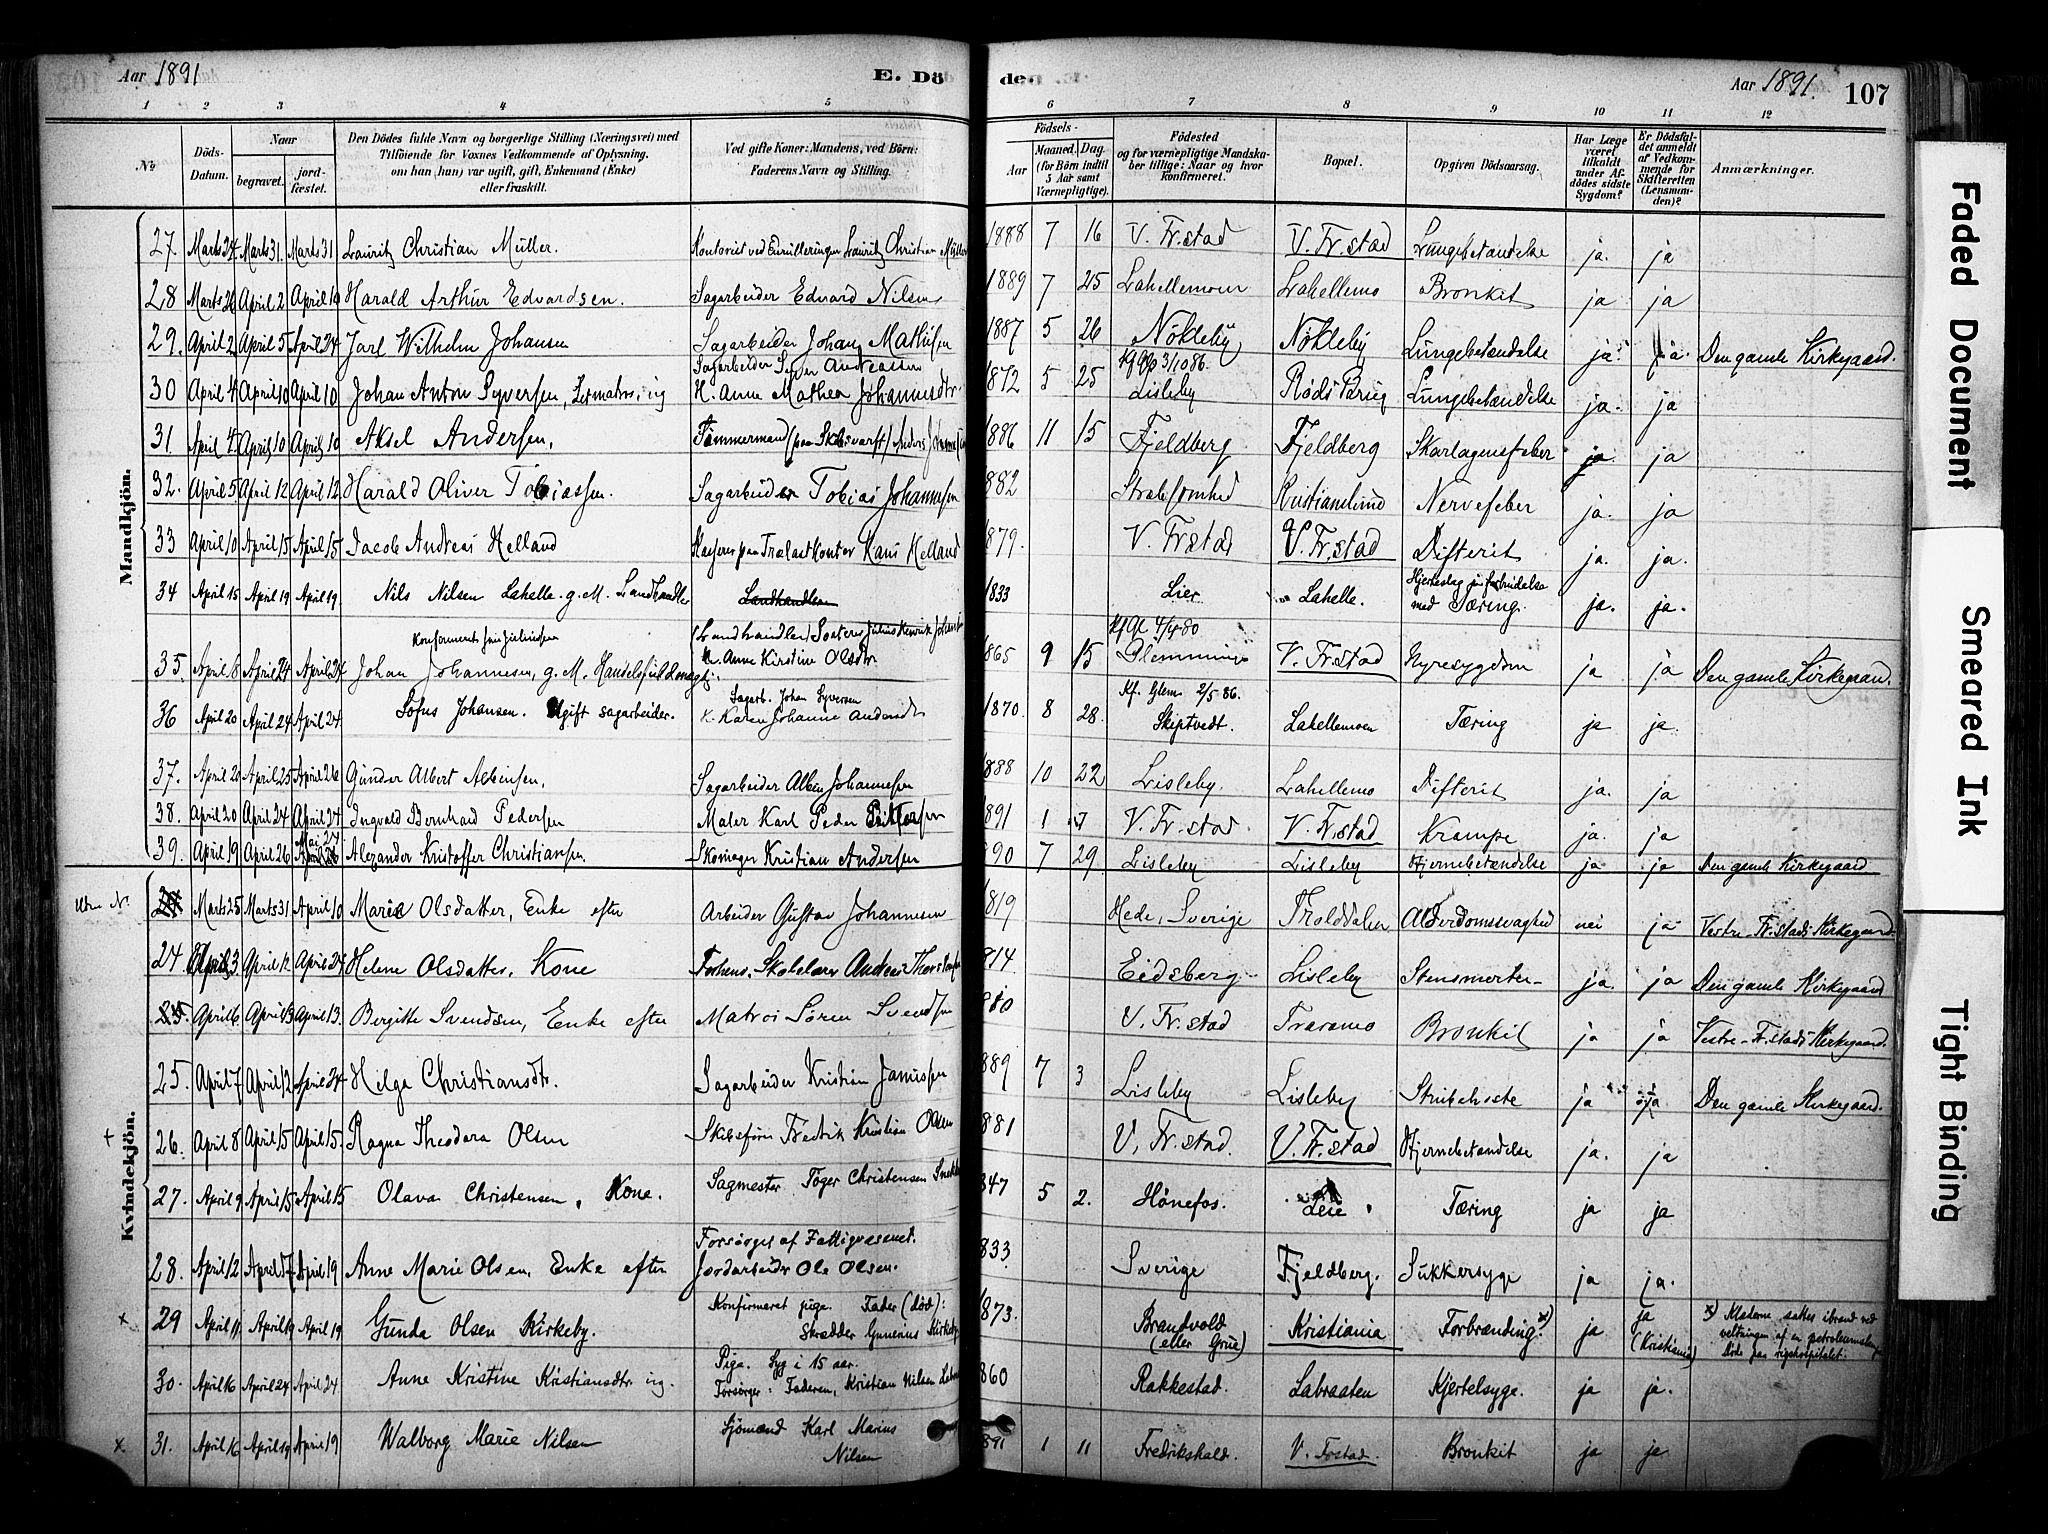 Aar 1891 E. Dö
de. Aar 1891. 107
1 2 3 4 5 6 7 8 9 10 11 12
No
Döds-Datum.
Naar begravet. jord-fæstet.
Den Dödes fulde Navn og borgerlige Stilling (Næringsvei) med
Tilföiende for Voxnes Vedkommende af Oplysning,
om han (hun) var ugift, gift, Enkemand (Enke)
eller fraskilt.
Ved gifte Koner: Mandens, ved Börn:
Faderens Navn og Stilling.
Födsels-
Aar Maaned. Dag.
(for Börn indtil
5 Aar samt
Værnepligtige).
Födested
og for værnepligtige Mandska-
ber tillige: Naar og hvor
konfirmeret.
Bopæl.
Opgiven Dödsaarsag.
Har Læge
været
tilkaldt
under Af-
dödes sidste
Sygdom?
Er Dödsfal-
det anmeldt
af Vedkom-
mende for
Skifteretten
(Lensman-
den)?
Anmærkninger.
Mandkjön.
27. Marts 24. Marts 31. Marts 31 Lauritz Christian Müller. Kontorist ved Lauritz Christian Müller 1888 7 16 V. Fr.stad V. Fr.stad Lungebetændelse ja. ja
28 Marts 26 April 2 April 19 Harald Arthur Edvardsen. Sagarbeider Edvard Nilsen 1889 7 25 Lahellemoen Lahellemo Bronkit ja ja
29. April 2 April 5 April 24 Jarl Wilhelm Johansen Sagarbeider Johan Mathisen 1887 5 26 Nökleby Nökleby Lungebetændelse ja ja. Den gamle Kirkegaard.
30 April 4 April 10 April 10 Johan Anton Syversen, Letmatros, ug Sagarbeider Syver Andreassen
H. Anne Mathea Johannesdtr 1872 5 25 3/10 86. Lisleby Röds Brug Lungebetændelse ja. ja
31 April 4. April 10 April 10 Aksel Andersen, Tömmermand (paa Skibsværft) Anders 1886 11 15 Fjeldberg Fjeldberg Skarlagensfeber ja ja
32. April 5. April 12 April 12 Harald Oliver Tobiassen. Sagarbeider Tobias Johannesen 882 Kristianslund Nervefeber ja. ja
33 April 10 April 15 April 15 Jacob Andreas Helland Kasserer paa Trælastkontor Hans Helland 1879. V. Frstad V. Fr.stad Difterit ja. ja.
34 April 15 April 19 April 19. Nils Nilsen Lahelle. g. M. Landhandler Landhandler 1833 Lier Lahelle. Hjerteslag i forbindelse
med Tæring. ja. ja.
35. April 18 April 24 April 24 Johan Johannesen, g. M. Handelsfuldmægtig. (Landhandler)
K. Anne Kirstine Olsdtr 1865 9 15 Kf. Gl. 4/4 80 Glemminge V. Fr.stad Nyresygdom ja ja Den gamle Kirkegaard.
36 April 20 April 24 April 24 Sofus Johansen. Ugift sagarbeider. Sagarb. Johan Syversen
K. Karen Johanne Andersdtr 1870. 8 28. Kf. Glem. 2/5 86. Skiptvedt. Lahellemoen Tæring ja ja.
37. April 20 April 25 April 26 Gunder Albert Albinsen. Sagarbeider Albin Johannesen 888 10 22 Lisleby. Lahellemo Difterit ja. ja
38. April 20 April 24 April 24 Ingvald Bernhard Pedersen Maler Karl Peder 891 1 V. Fr.stad. V. Fr.stad Krampe ja. ja
39. April 19 April 26 Mai 27 Alexander Kristoffer Christiansen Skomager Kristian Andersen 890 7 29 Lisleby Lisleby Hjernebetændelse ja ja Den gamle Kirkegaard
Kvindekjön.
Uden N. Marts 25 Marts 31 April 10 Maria Olsdatter, Enke efter Arbeider Gustav Johannesen 1819 Hede, Sverige Trolddalen Alderdomssvaghed nei ja Vestre Fr.stads Kirkegaard
24 April 3 April 12 April 24 Helene Olsdatter. Kone Forhenv. Skolelærer Andreas 814 Eidsberg Lisleby Stensmerter ja. ja Den gamle Kirkegaard
25. April 6. April 13 April 13. Bergitte Svendsen, Enke efter Matros Sören Svendsen V. Fr.stad Traramo Bronkit ja ja Vestre Fr.stads Kirkegaard.
25. April 7 April 12 April 24 Helga Christiansdtr. Sagarbeider Kristian Janussen 889 7 3 Lisleby Lisleby Strubehoste ja ja Den gamle Kirkegaard.
+ 26. April 8 April 15 April 15. Ragna Theodora Olsen Skibsförer Fredrik Kristian Olsen 881 V. Fr.stad. V. Fr.stad Hjernebetændelse ja. ja
27. April 9 April 15 April 15 Olava Christensen, Kone. Sagmester Töger Christensen 847 5 2. Hönefos. Leie Tæring ja ja
28. April 12 April 17 April 19 Anne Marie Olsen, Enke efter Forsörget af Fattigvæsenet.
Jordarbeider Ole Olsen. 833 Sverige Fjeldberg. Sukkersyge ja ja.
x 29 April 11 April 19 April 19 Gunda Olsen Kirkeby. Konfirmeret pige. Fader (död):
Skrædder Gunerius Kirkeby 1873. Brandvold
(eller Grue) Kristiania Forbrænding. x) ja ja
(Kristiania) x) Klæderne sattes i brand ved
veltningen af en petroleumslampe
Döde paa rigshospitalet.
30. April 16 April 24 April 24 Anne Kristine Kristiansdtr ug. Pige. Syg i 15 aar.
Forsörger: Faderen, Kristian Nilsen 860 Rakkestad. Labraaten Kjertelsyge. ja ja.
x 31. April 16 April 19 April 19 Walborg Marie Nilsen Sjömand Karl Marius
Nilsen 891 1 11 Fredrikshald. V. Frstad. Bronkit ja ja
Faded Document
Smeared Ink
Tight Binding